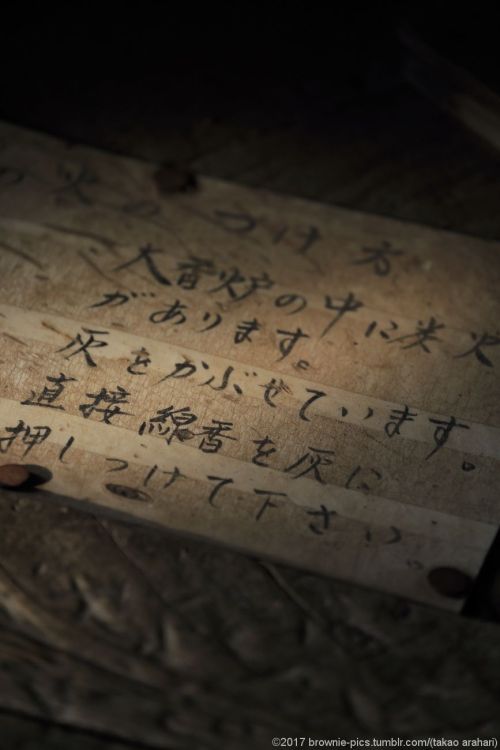 の火のつけ方
大香炉の中に炭火
があります。
灰をかぶせています。
直接線香を灰に
押しつけて下さい。
©2017 brownie-pics.tumblr.com/(takao arahari)